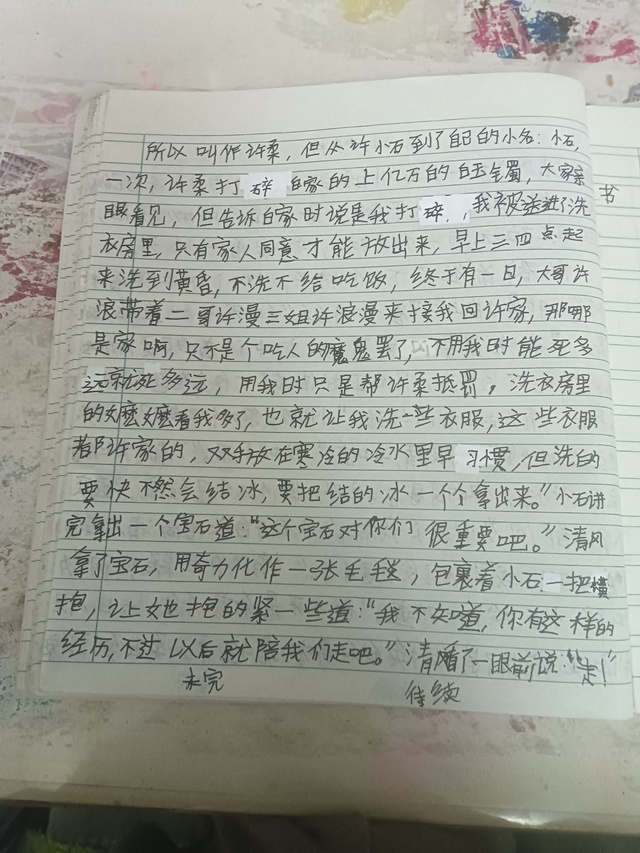 所以叫作许柔，但从许小石到了自己的小名：小石，
一次，许柔打碎白家的上亿万的白玉镯，大家亲
眼看见，但告诉白家时说是我打碎，我被送进了洗
衣房里，只有家人同意才能放出来，早上三四点起
来洗到黄昏，不洗不给吃饭，终于有一日，大哥许
浪带着二哥许漫三姐许浪漫来接我回许家，那哪
是家啊，只不是个吃人的魔鬼罢了，不用我时能死多
远就死多远，用我时只是帮许柔抵罚。洗衣房里
的嬷嬷看我多了，也就让我洗一些衣服，这些衣服
都许家的，双手放在寒冷的冷水里早习惯，但洗的
要快不然会结冰，要把结的冰一个个拿出来。”小石讲
完拿出一个宝石道：“这个宝石对你们很重要吧。”清风
拿了宝石，用奇力化作一张毛毯，包裹着小石一把横
抱，让她抱的紧一些道：“我不知道，你有这样的
经历，不过以后就陪我们走吧。”清了一眼前说：“走！”
未完 待续
书